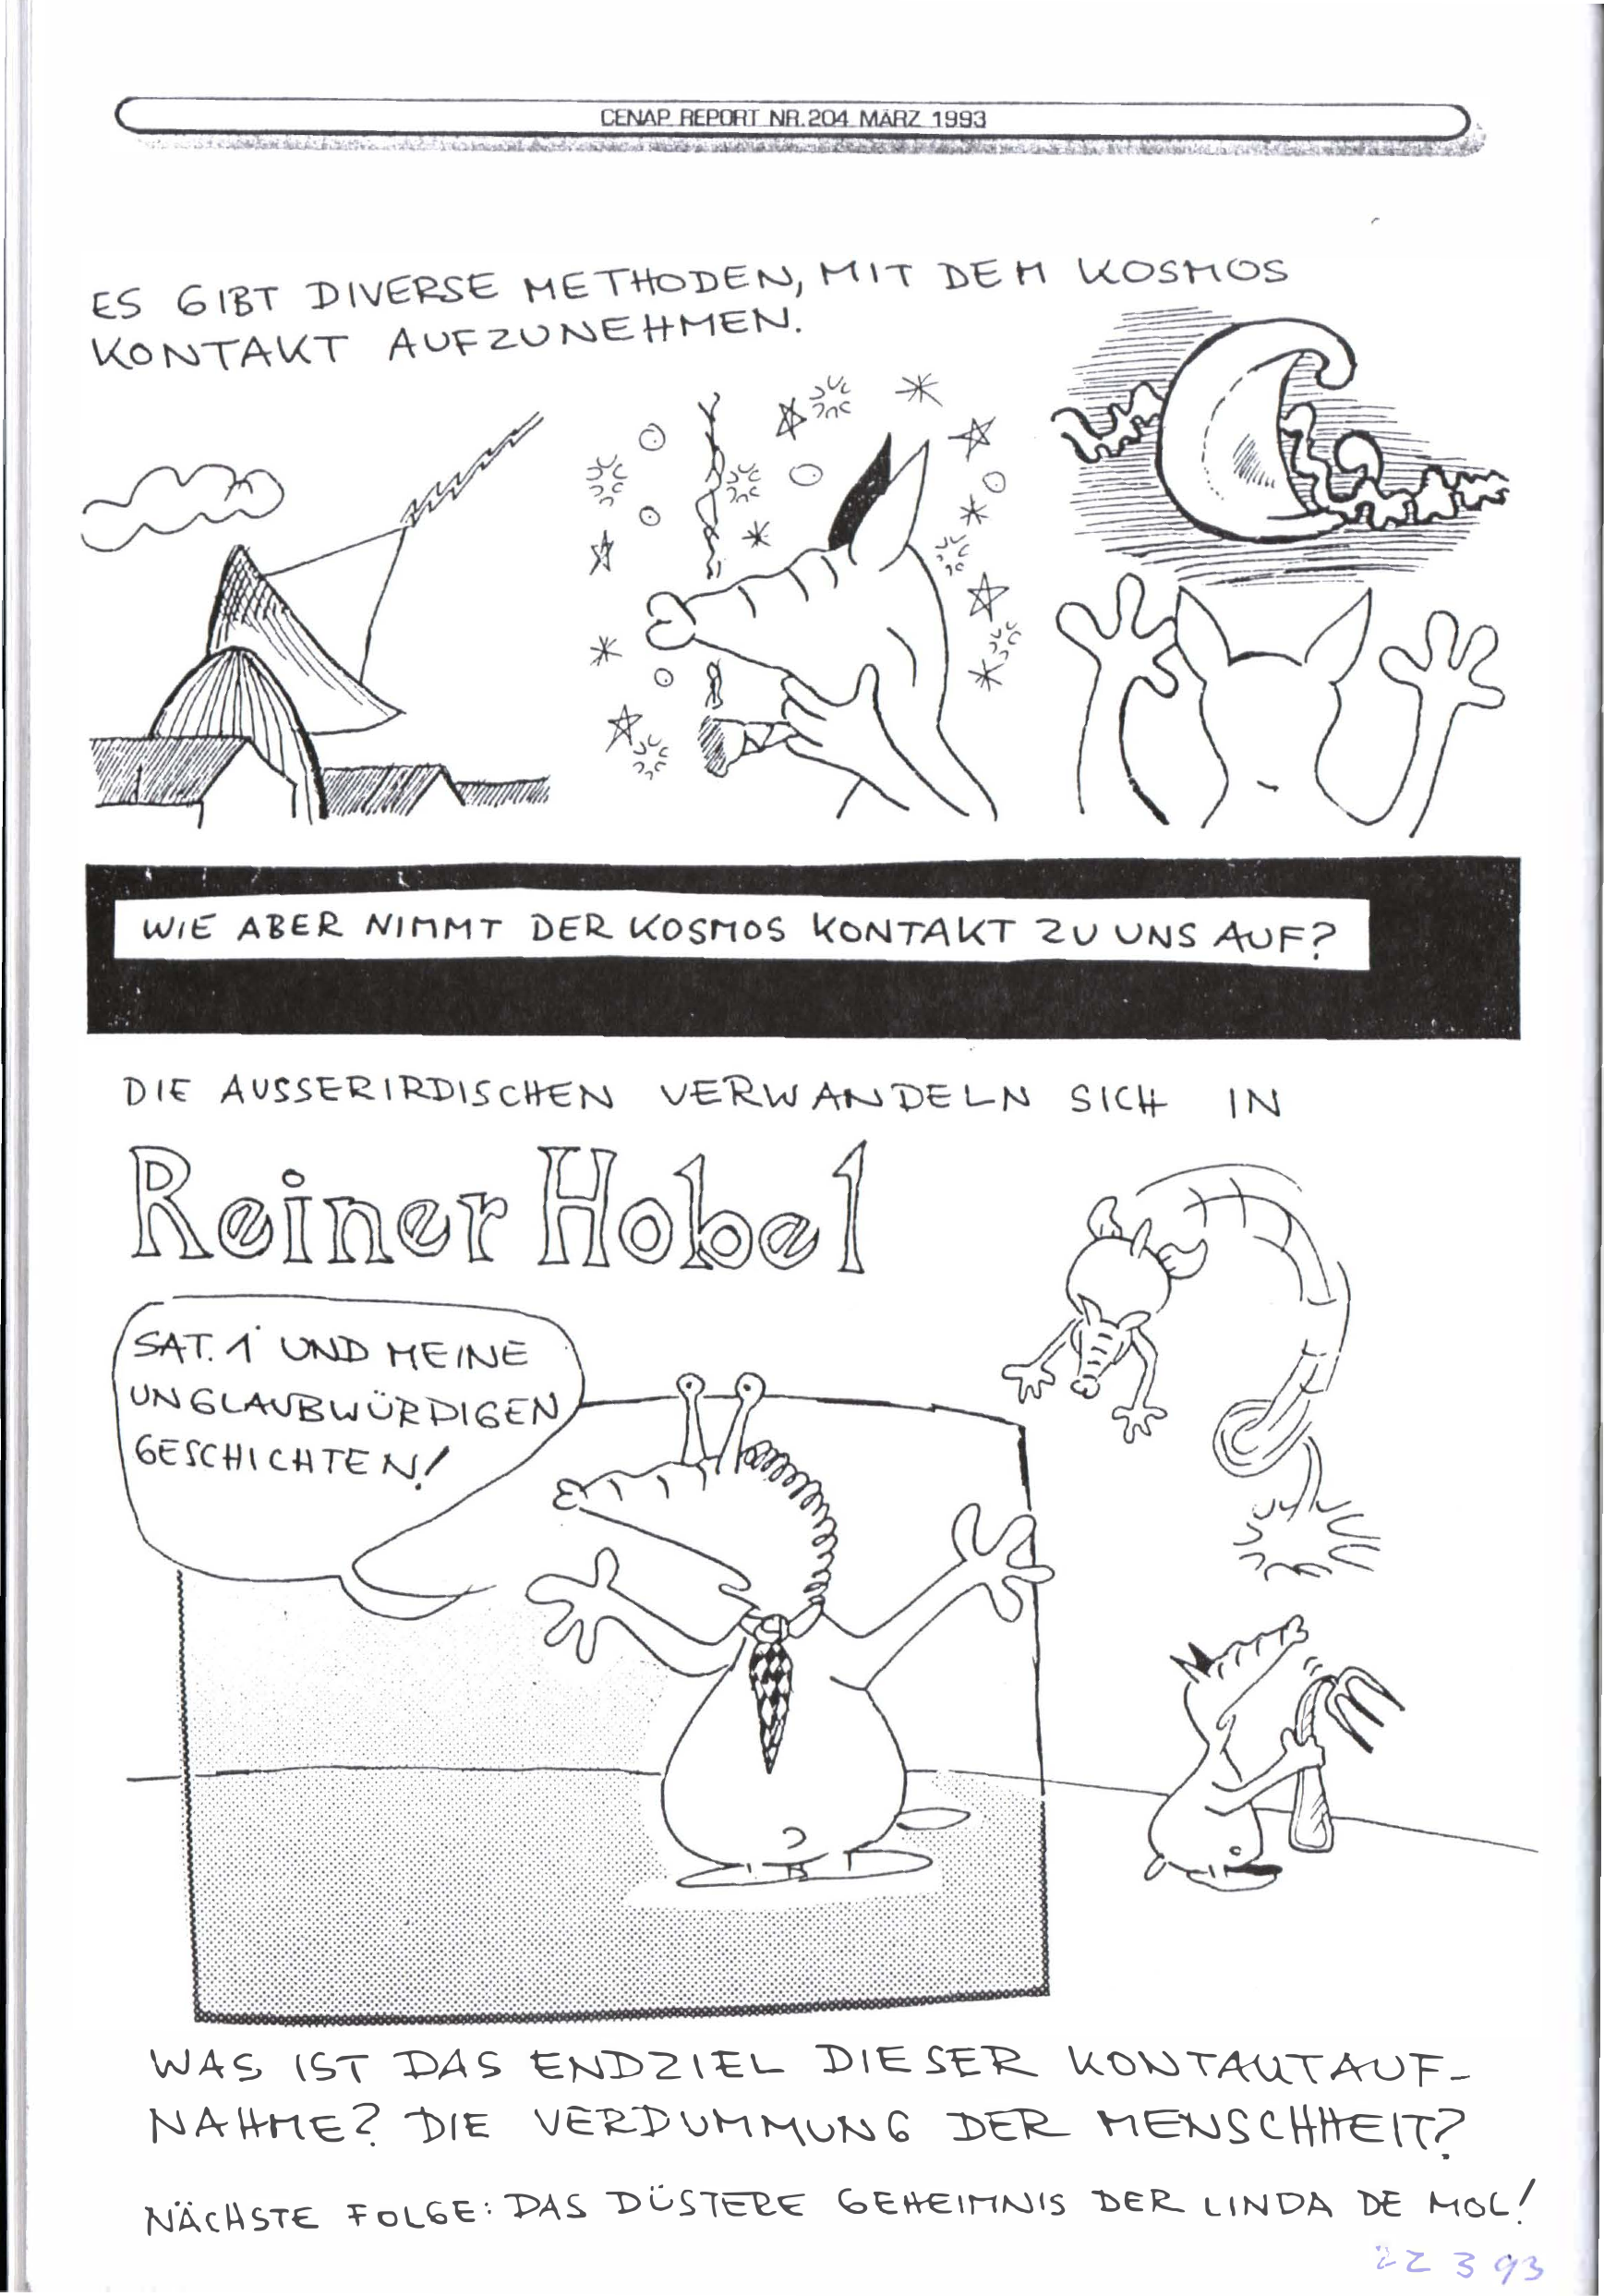 CENAP REPORT NR.204 MÄRZ 1993
ES GIBT DIVERSE METHODEN, MIT DEM KOSMOS
KONTAKT AUFZUNEHMEN.
WIE ABER NIMMT DER KOSMOS KONTAKT ZU UNS AUF?
DIE AUSSERIRDISCHEN VERWANDELN SICH IN
Reiner Hobel
SAT.1 UND MEINE
UNGLAUBWÜRDIGEN
GESCHICHTEN!
WAS IST DAS ENDZIEL DIESER KONTAKTAUF-
NAHME? DIE VERDUMMUNG DER MENSCHHEIT?
NÄCHSTE FOLGE: DAS DÜSTERE GEHEIMNIS DER LINDA DE MOL!
22 3 93